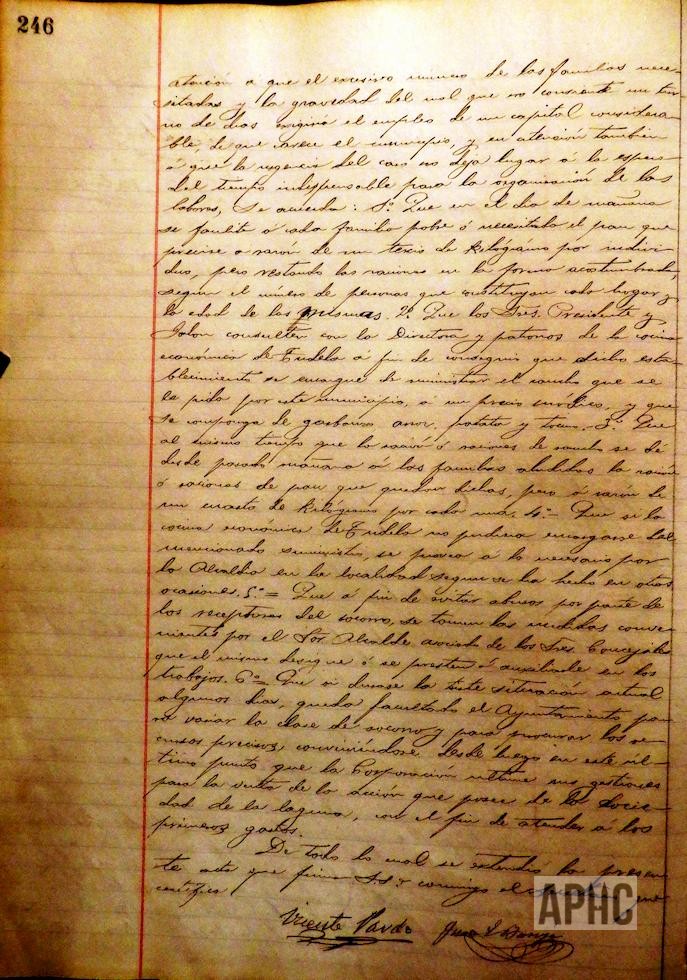 246
atención á que el excesivo número de las familias nece-
sitadas y la gravedad del mal que no consiente un tur-
no de dias exigirá el empleo de un capital considera-
ble, de que carece el municipio, y en atención tambien
á que la urgencia del caso no deja lugar á la espera
del tiempo indispensable para la organización de las
labores, se acuerda: 1.º Que en el dia de mañana
se facilite á cada familia pobre ó necesitada el pan que
precise a razón de un tercio de kilógramo por indivi-
duo, pero restando las raciones en la forma acostumbrada,
segun el número de personas que constituyan cada hogar y
la edad de las mismas. 2.º Que los Sres. Presidente y
Jalon consulten con la Directora y patronos de la cocina
económica de Tudela á fin de conseguir que dicho esta-
blecimiento se encargue de suministrar el rancho que se
le pida por este municipio, á un precio módico, y que
se componga de garbanzo, arroz, patata y tocino. 3.º Que
al mismo tiempo que la ración ó raciones de rancho se dé
desde pasado mañana á las familias aludidas la ración
ó raciones de pan que quedan dichas, pero á razón de
un cuarto de kilógramo por cada una. 4.º = Que si la
cocina económica de Tudela no pudiera encargarse del
mencionado suministro, se provea á lo necesario por
la Alcaldia en la localidad segun se ha hecho en otras
ocasiones. 5.º = Que á fin de evitar abusos por parte de
los receptores del socorro, se tomen las medidas conve-
nientes por el Sor. Alcalde asociado de los Sres. Concejales
que el mismo designe ó se presten á auxiliarle en los
trabajos. 6.º = Que si durase la triste situación actual
algunos dias, queda facultado el Ayuntamiento pa-
ra variar la clase de socorro y para procurar los re-
cursos precisos conviniéndose desde luego en este úl-
timo punto que la Corporación ultime sus gestiones
para la venta de la acción que posee de la Socie-
dad de la laguna, con el fin de atender á los
primeros gastos.
De todo lo cual se extendió la presen-
te acta que firma S.S.ª conmigo el
certifico
Vicente Pardo
APHC